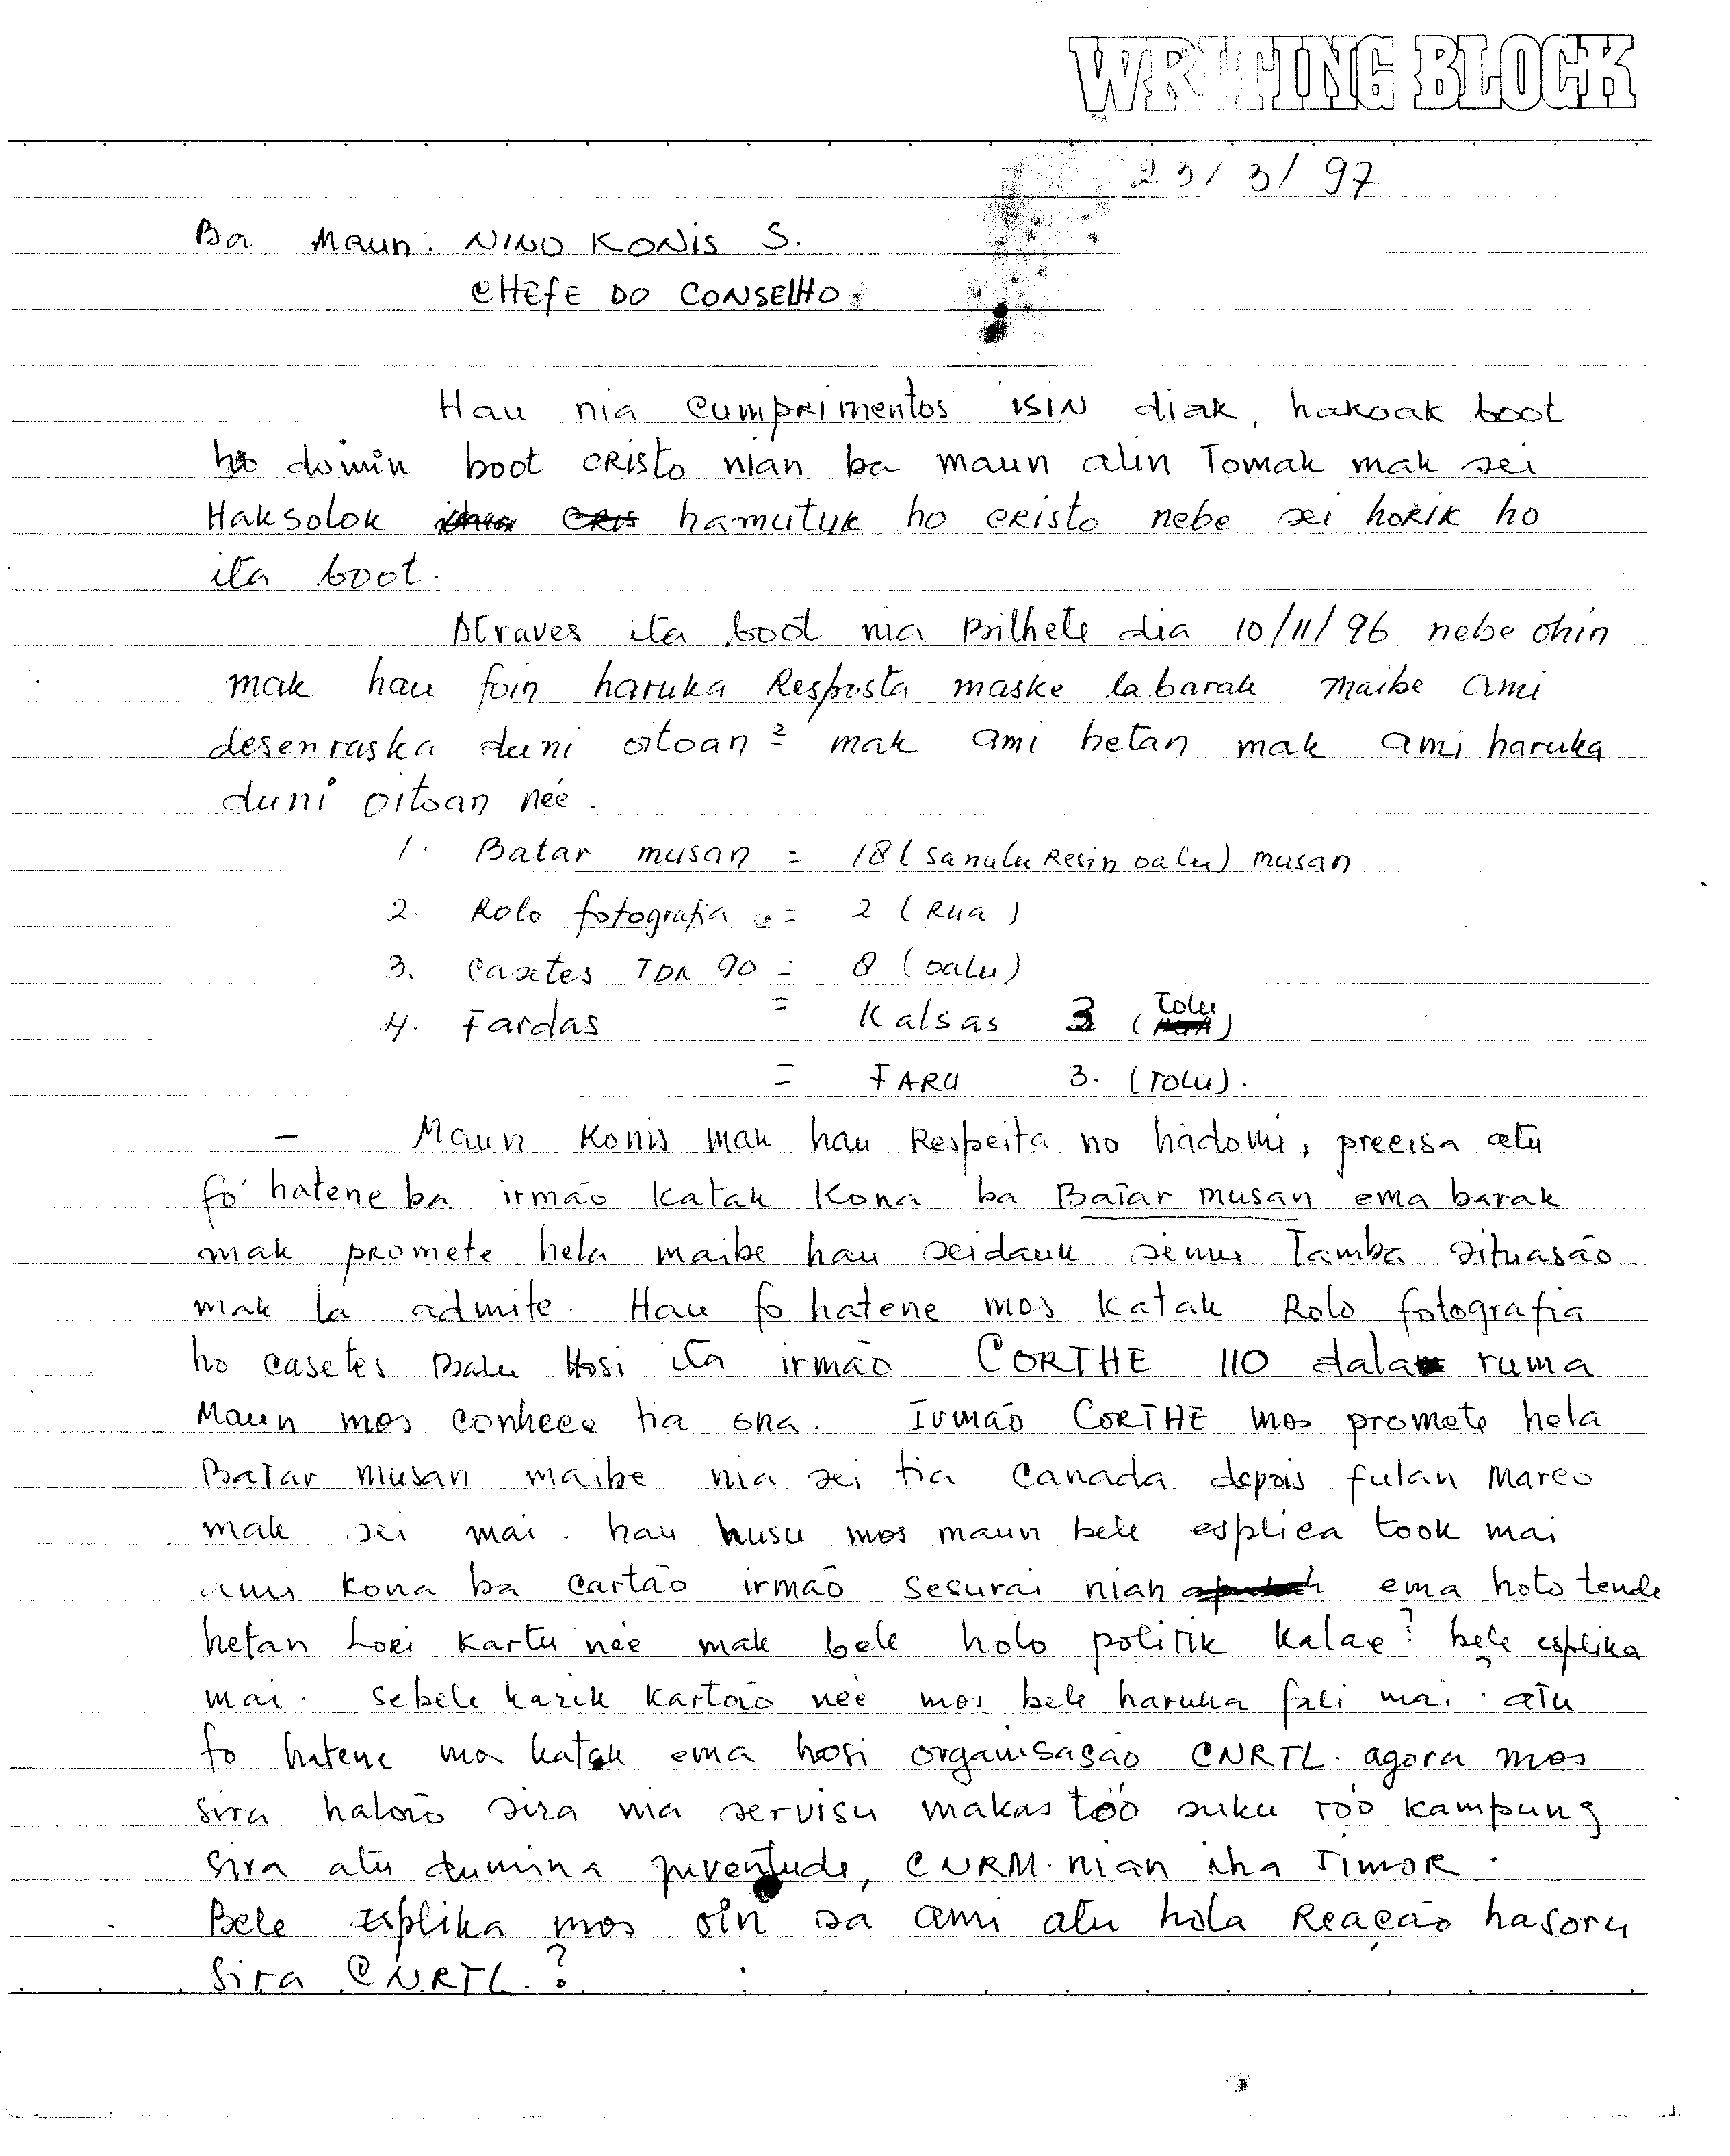 WRITING BLOCK
23/3/97
Ba Maun: NINO KONIS S.
CHEFE DO CONSELHO.
Hau nia cumprimentos ISIN diak, hakoak boot
ho domin boot CRISTO nian ba maun alin Tomak mak sei
Haksolok hamutuk ho CRISTO nebe sei horik ho
ita boot.
Atraves ita boot nia Bilhete dia 10/11/96 nebe ohin
mak hau foin haruka Resposta maske la barak maibe ami
desenraska duni oitoan 2 mak ami hetan mak ami haruka
duni oitoan neé.
1. Batar musan = 18 (sanulu Resin oalu) musan
2. Rolo fotografia = 2 (Rua)
3. Casetes TDK 90 = 8 (oalu)
4. Fardas = Kalsas 3 (Tolu)
= FARU 3. (TOLU).
- Maun Konis mak hau Respeita no hadomi, precisa atu
fo hatene ba irmão Katak Kona ba Batar musan ema barak
mak promete hela maibe hau seidauk simu Tamba situasão
mak la admite. Hau fo hatene mos Katak Rolo fotografia
ho casetes Balu Hosi ita irmão CORTHE 110 dala ruma
Maun mos conhece tia ona. Irmão CORTHE mos promete hela
Batar musan maibe nia sei tia Canada depois fulan Marco
mak sei mai. hau husu mos maun bele esplica took mai
ami Kona ba cartão irmão Sesurai nian ema hoto tende
hetan Lori Kartu neé mak bele holo politik Kalae? bele esplika
mai. Sebele karik Kartão neé mos bele haruka fali mai. atu
fo hatene mos katak ema hosi organisasão CNRTL. agora mos
sira halão sira nia servisu makas tóo suku tóo kampung
sira atu dumina juventude, CNRM. nian iha TIMOR.
Bele esplika mos oin sa ami atu hola Reação hasoru
sira CNRTL.?